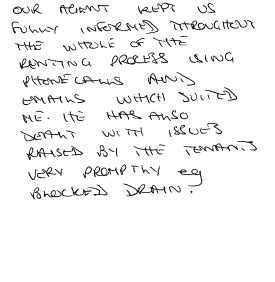 OUR AGENT KEPT US
FULLY INFORMED THROUGHOUT
THE WHOLE OF THE
RENTING PROCESS USING
PHONECALLS AND
EMAILS WHICH SUITED
ME. HE HAS ALSO
DEALT WITH ISSUES
RAISED BY THE TENANTS
VERY PROMPTLY eg
BLOCKED DRAIN.